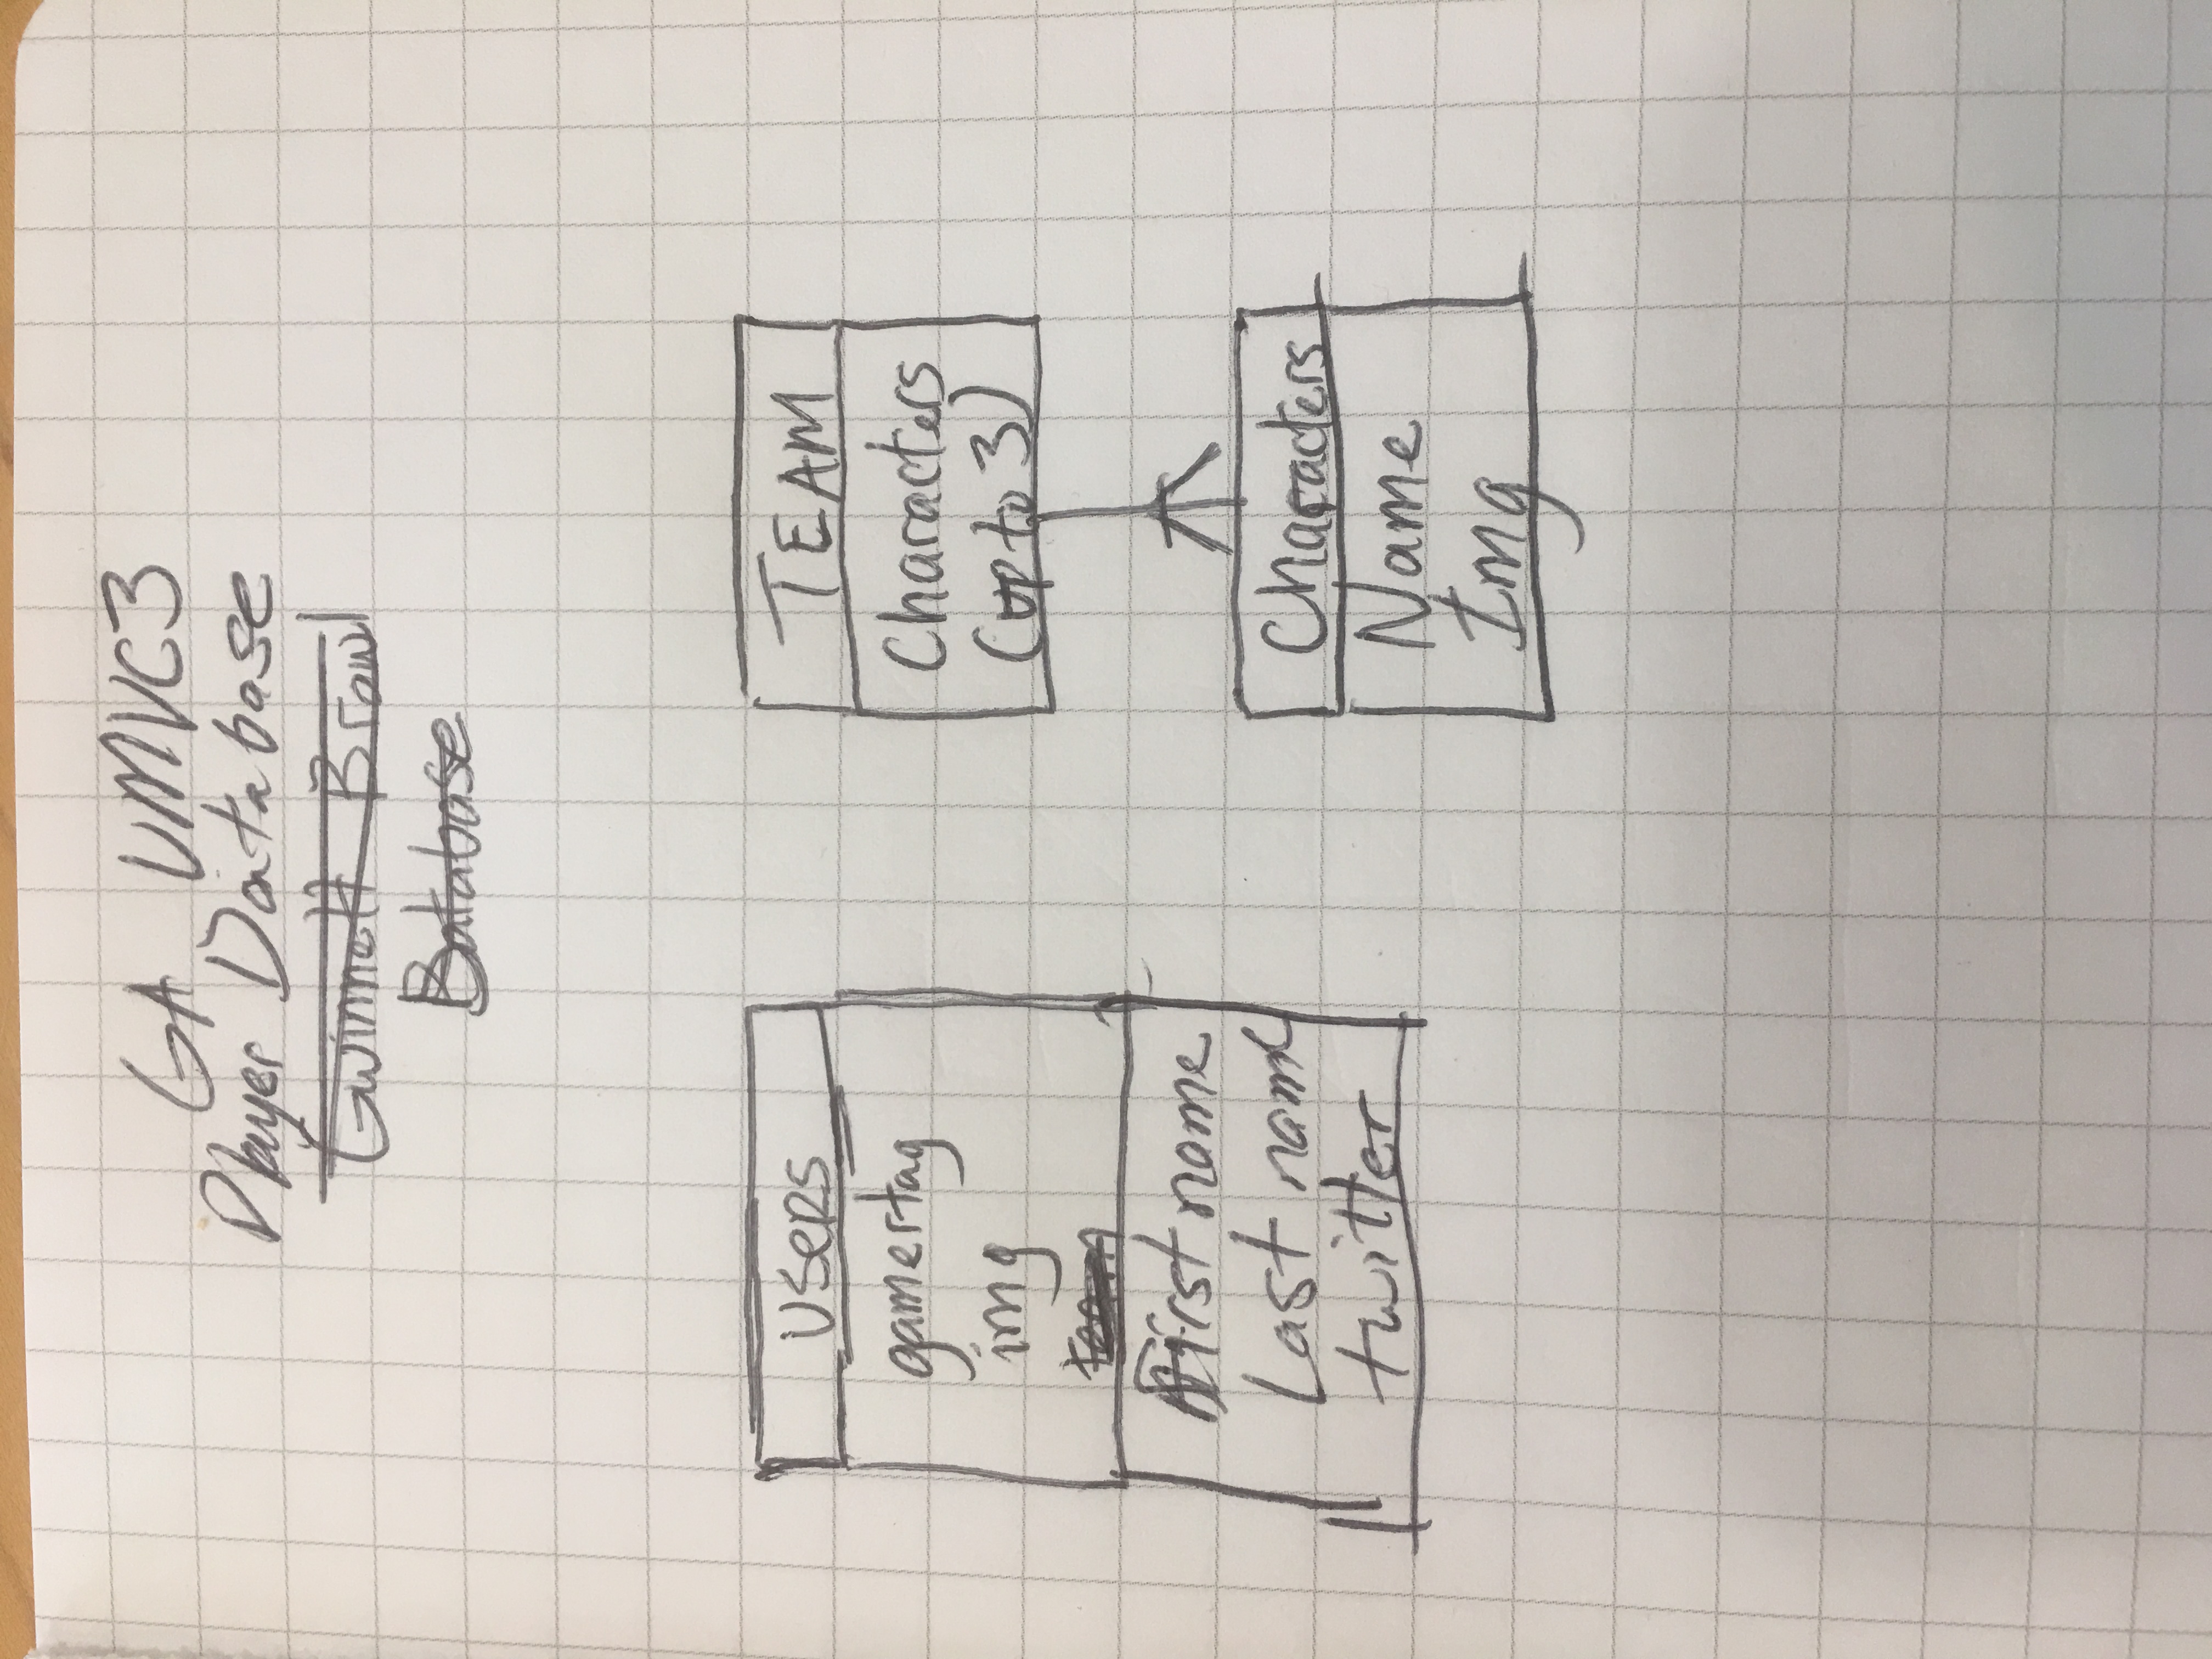 GA UMVC3
Player Database
Gwinnett Brawl
Database
USERS
gamertag
img
team
First name
Last name
twitter
TEAM
Characters
(up to 3)
Characters
Name
Img